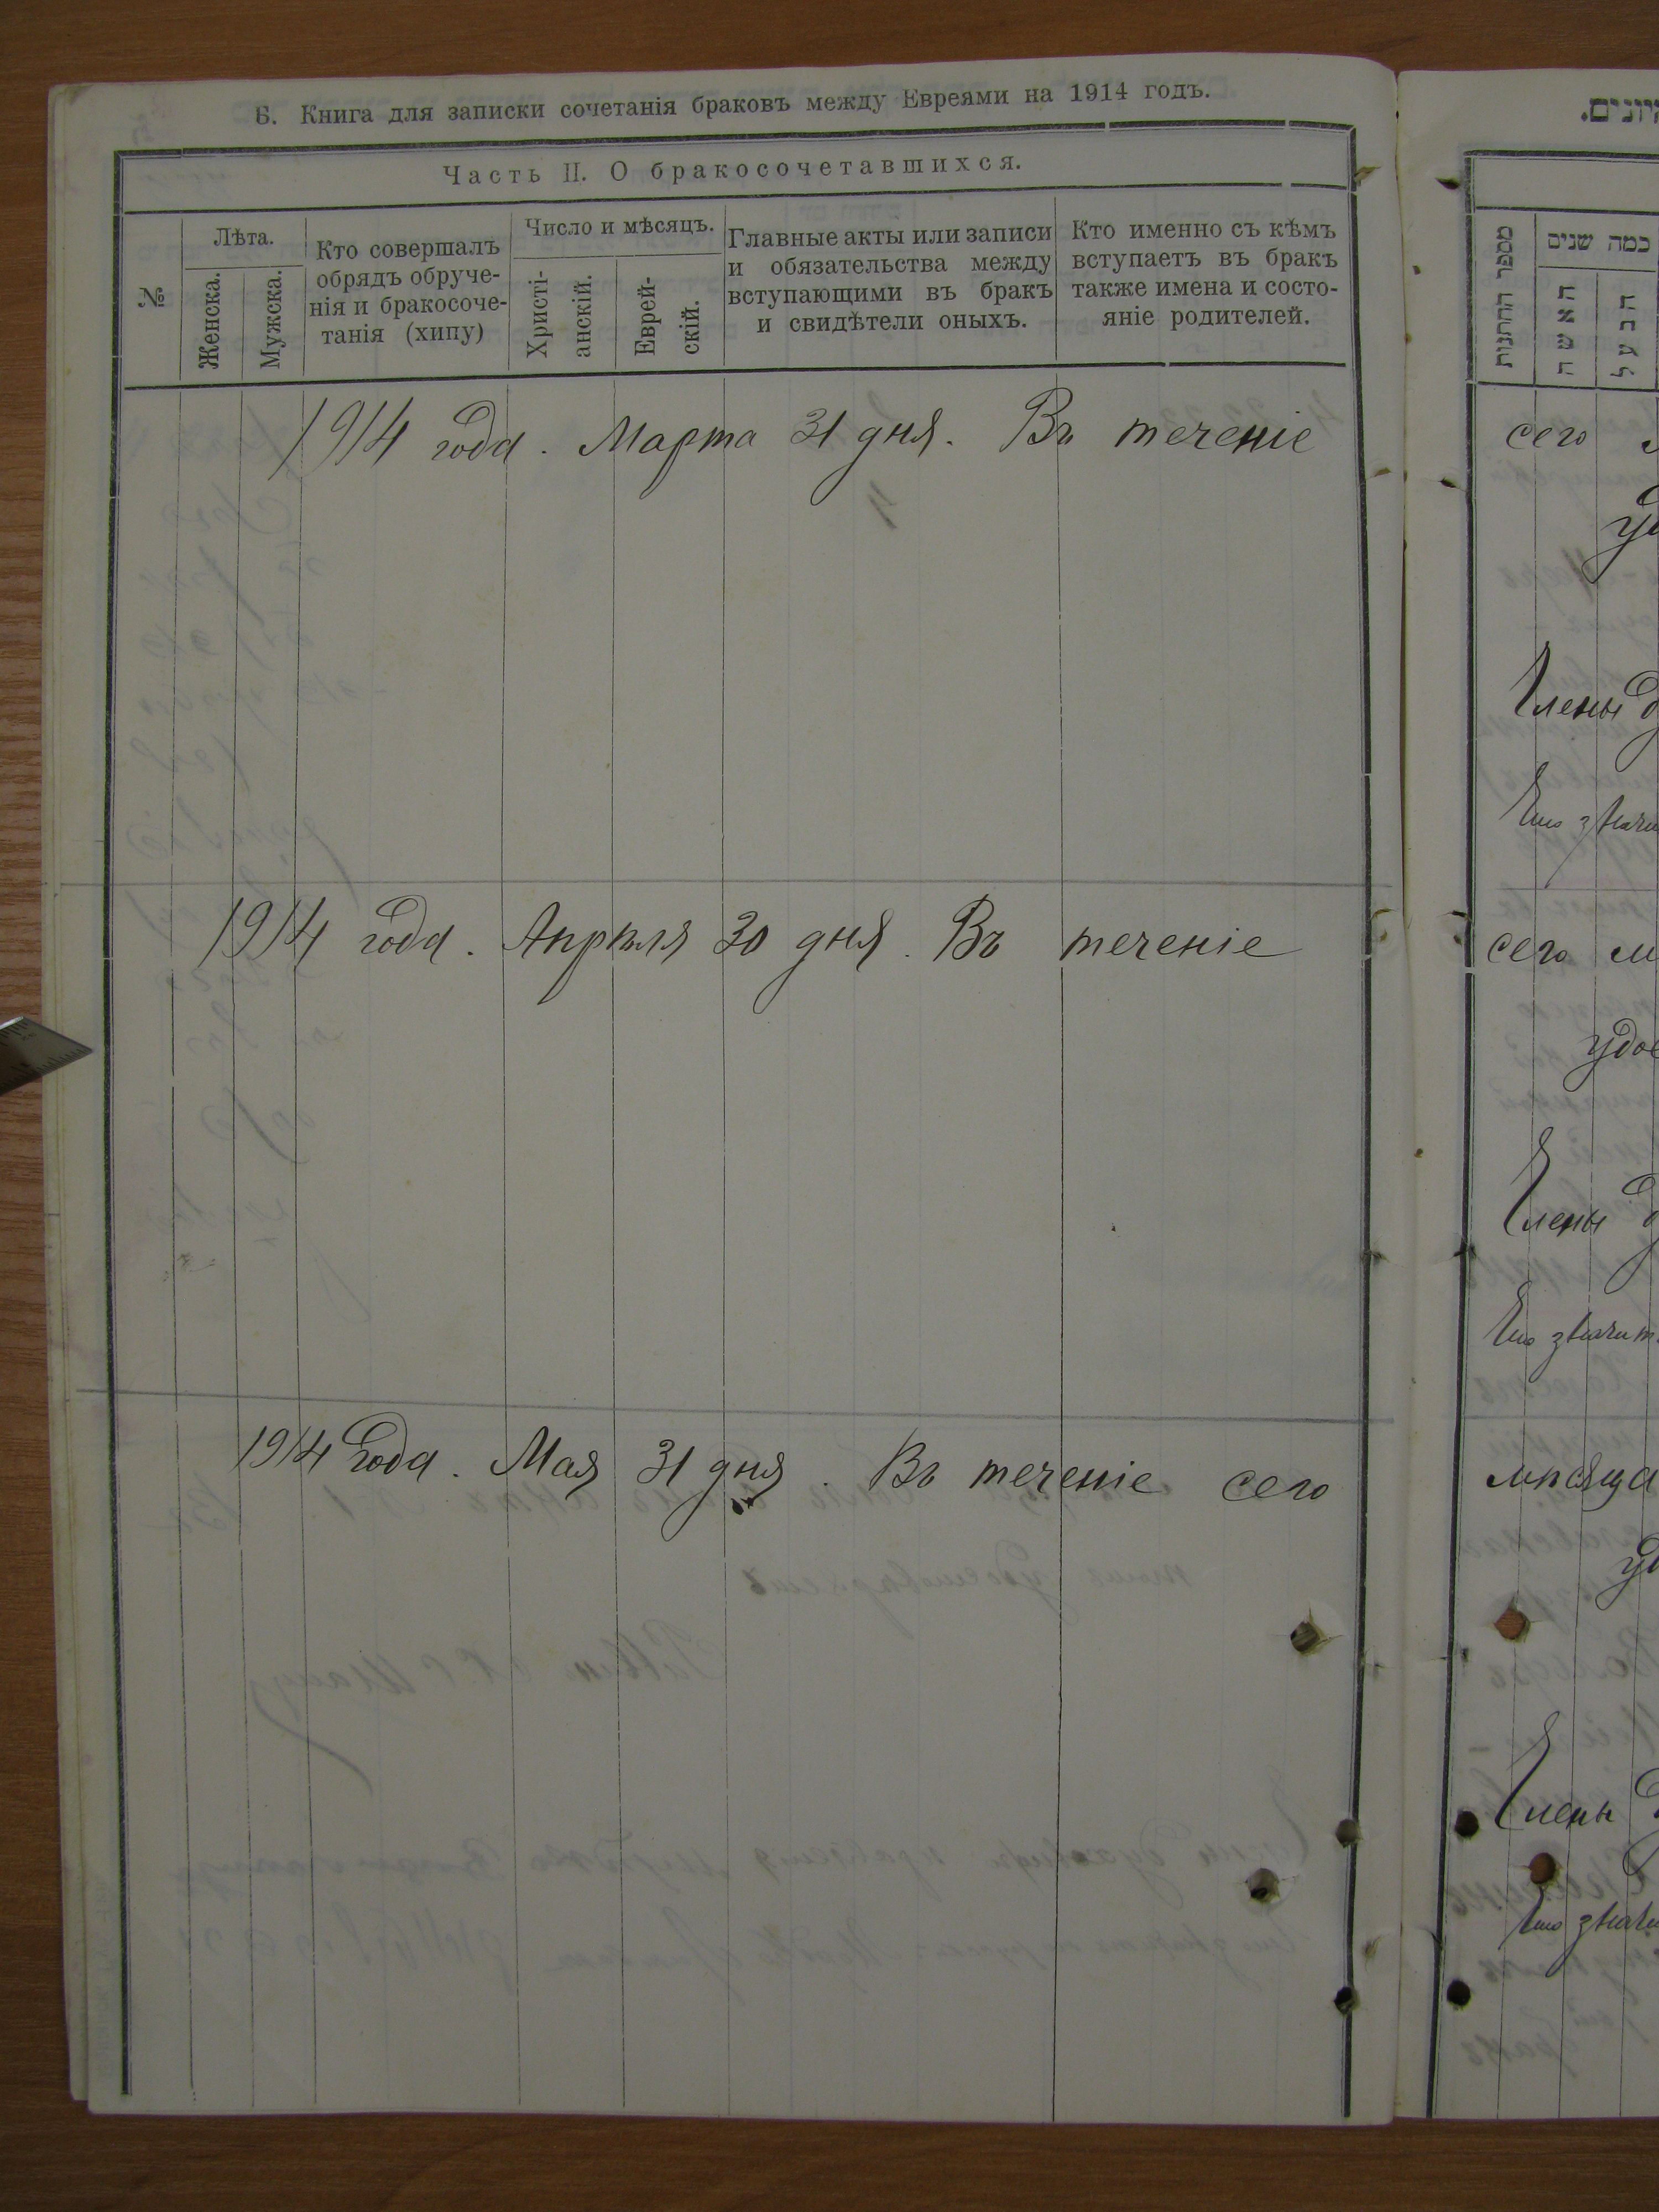 Б. Книга для записки сочетанія браковъ между Евреями на 1914 годъ.
Часть II. О бракосочетавшихся.
№
Лѣта.
Женска.
Мужска.
Кто совершалъ
обрядъ обруче-
нія и бракосоче-
танія (хипу)
Число и мѣсяцъ.
Христі-
анскій.
Еврей-
скій.
Главные акты или записи
и обязательства между
вступающими въ бракъ
и свидѣтели оныхъ.
Кто именно съ кѣмъ
вступаетъ въ бракъ
также имена и состо-
яніе родителей.
1914 года. Марта 31 дня. Въ теченіе
1914 года. Апрѣля 30 дня. Въ теченіе
1914 года. Мая 31 дня. Въ теченіе сего
מספר החתונות
כמה שנים
האשה
הבעל
сего
Члены
сего м
удос
Члены
мѣсяца
Члены